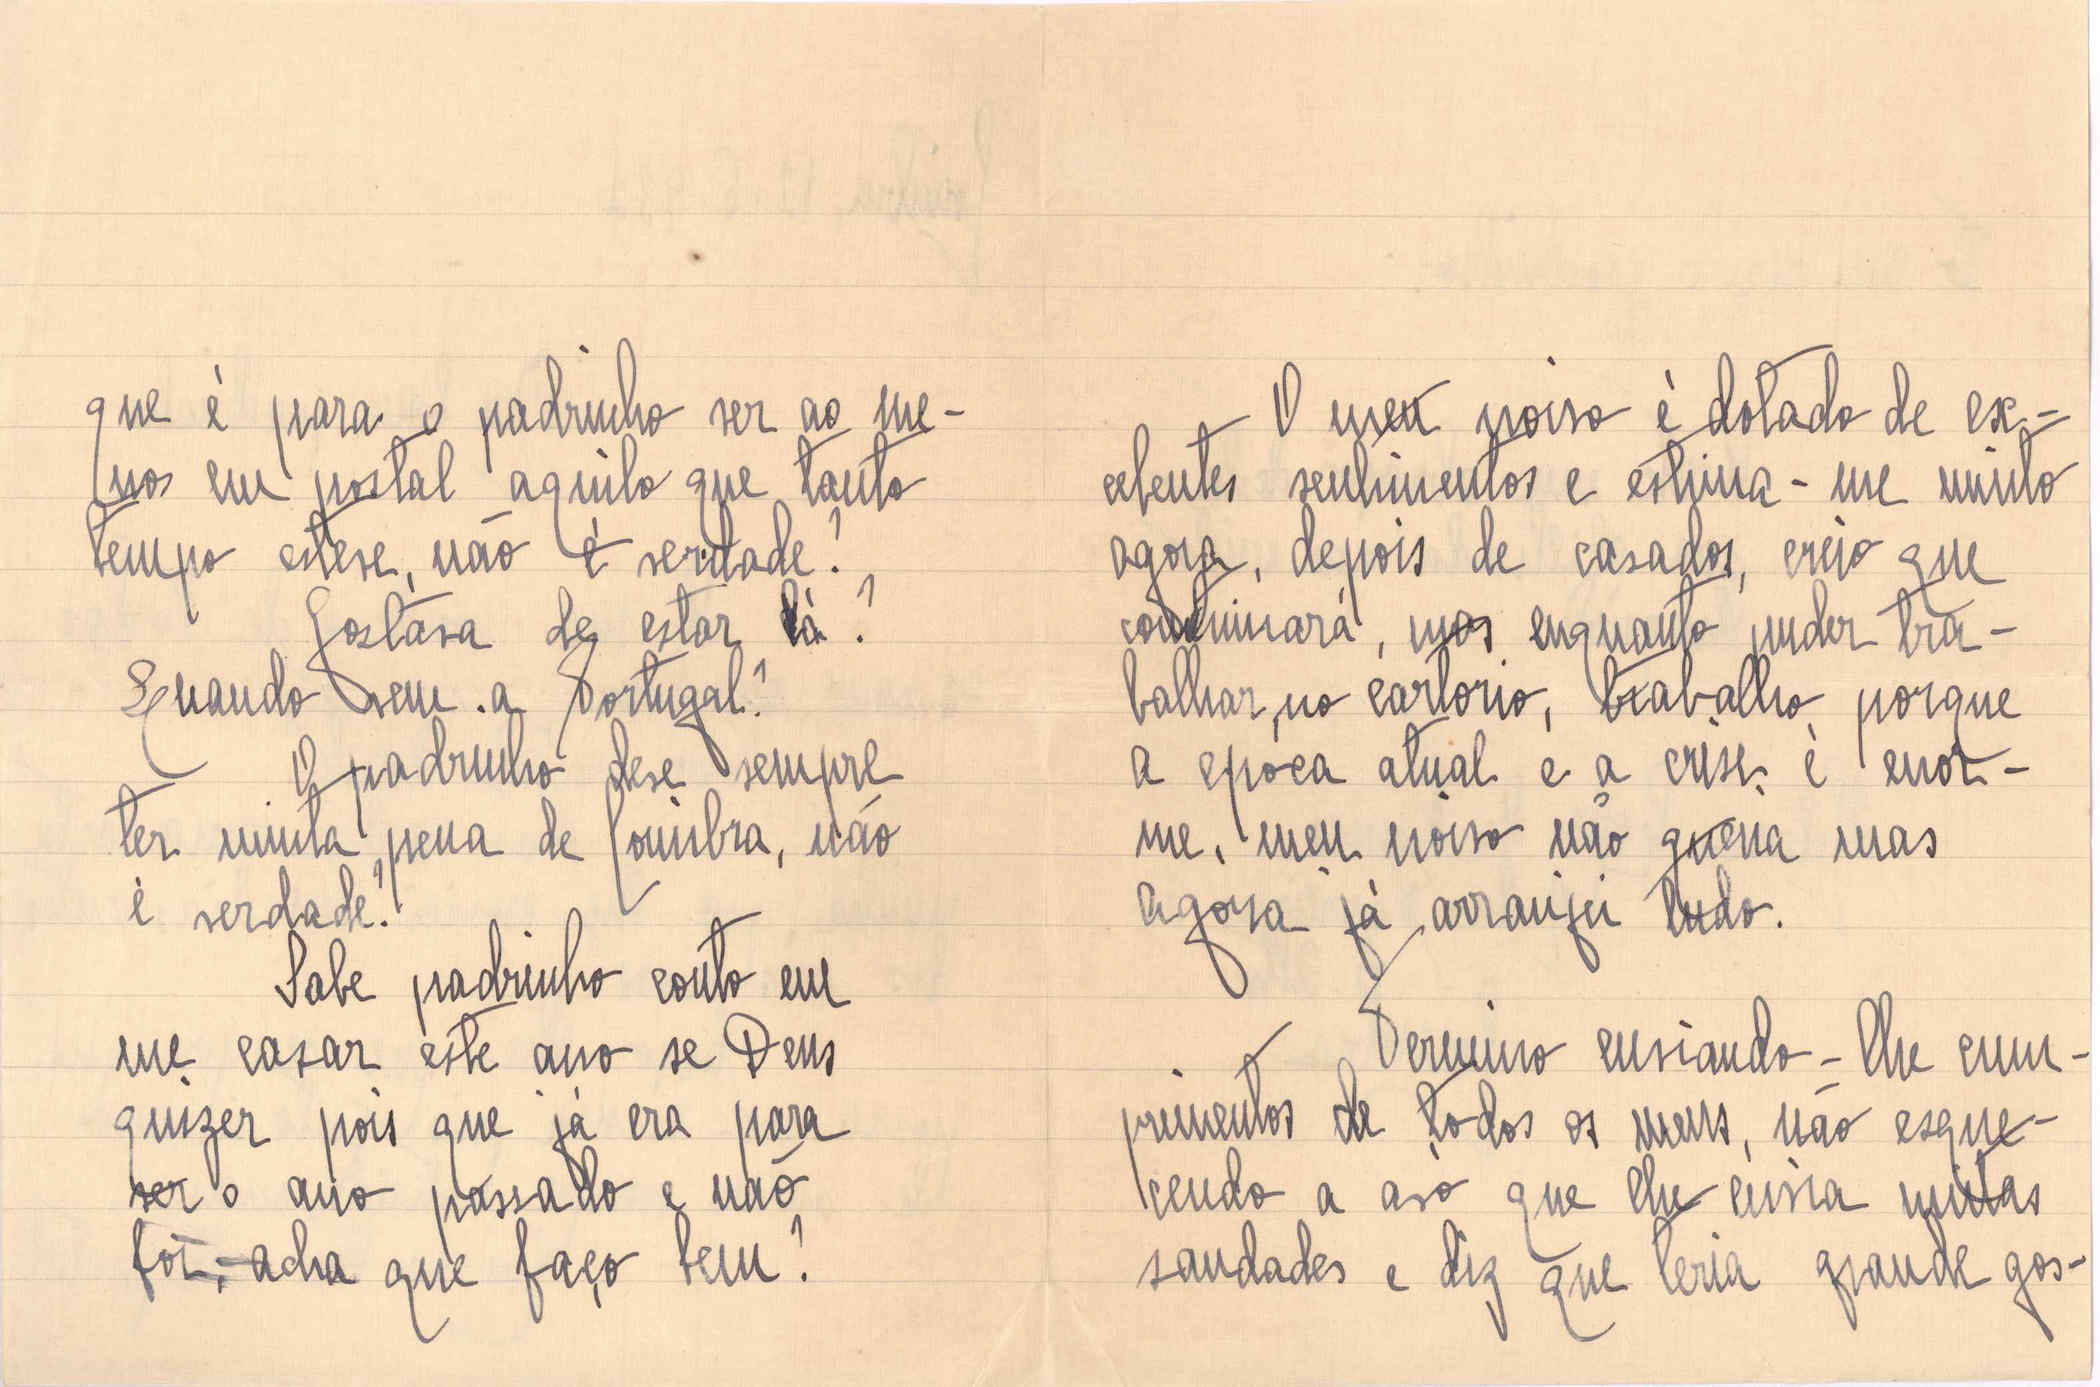 que é para o padrinho ser ao me-
nos em postal aquilo que tanto
tempo esteve, não é verdade?
Gostava de estar lá?
Quando vem a Portugal?
O padrinho deve sempre
ter muita pena de Coimbra, não
é verdade?
Sabe padrinho conto em
me casar este ano se Deus
quizer pois que já era para
ser o ano passado e não
foi, acha que faço bem?
O meu noivo é dotado de ex-
celentes sentimentos e estima-me muito
agora, depois de casados, creio que
continuará, mas enquanto puder tra-
balhar, no cartorio, trabalho porque
a epoca atual e a crise é enor-
me, meu noivo não queria mas
agora já arranjei tudo.
Termino enviando-lhe cum-
primentos de todos os meus, não esque-
cendo a avó que lhe envia muitas
saudades e diz que teria grande gos-